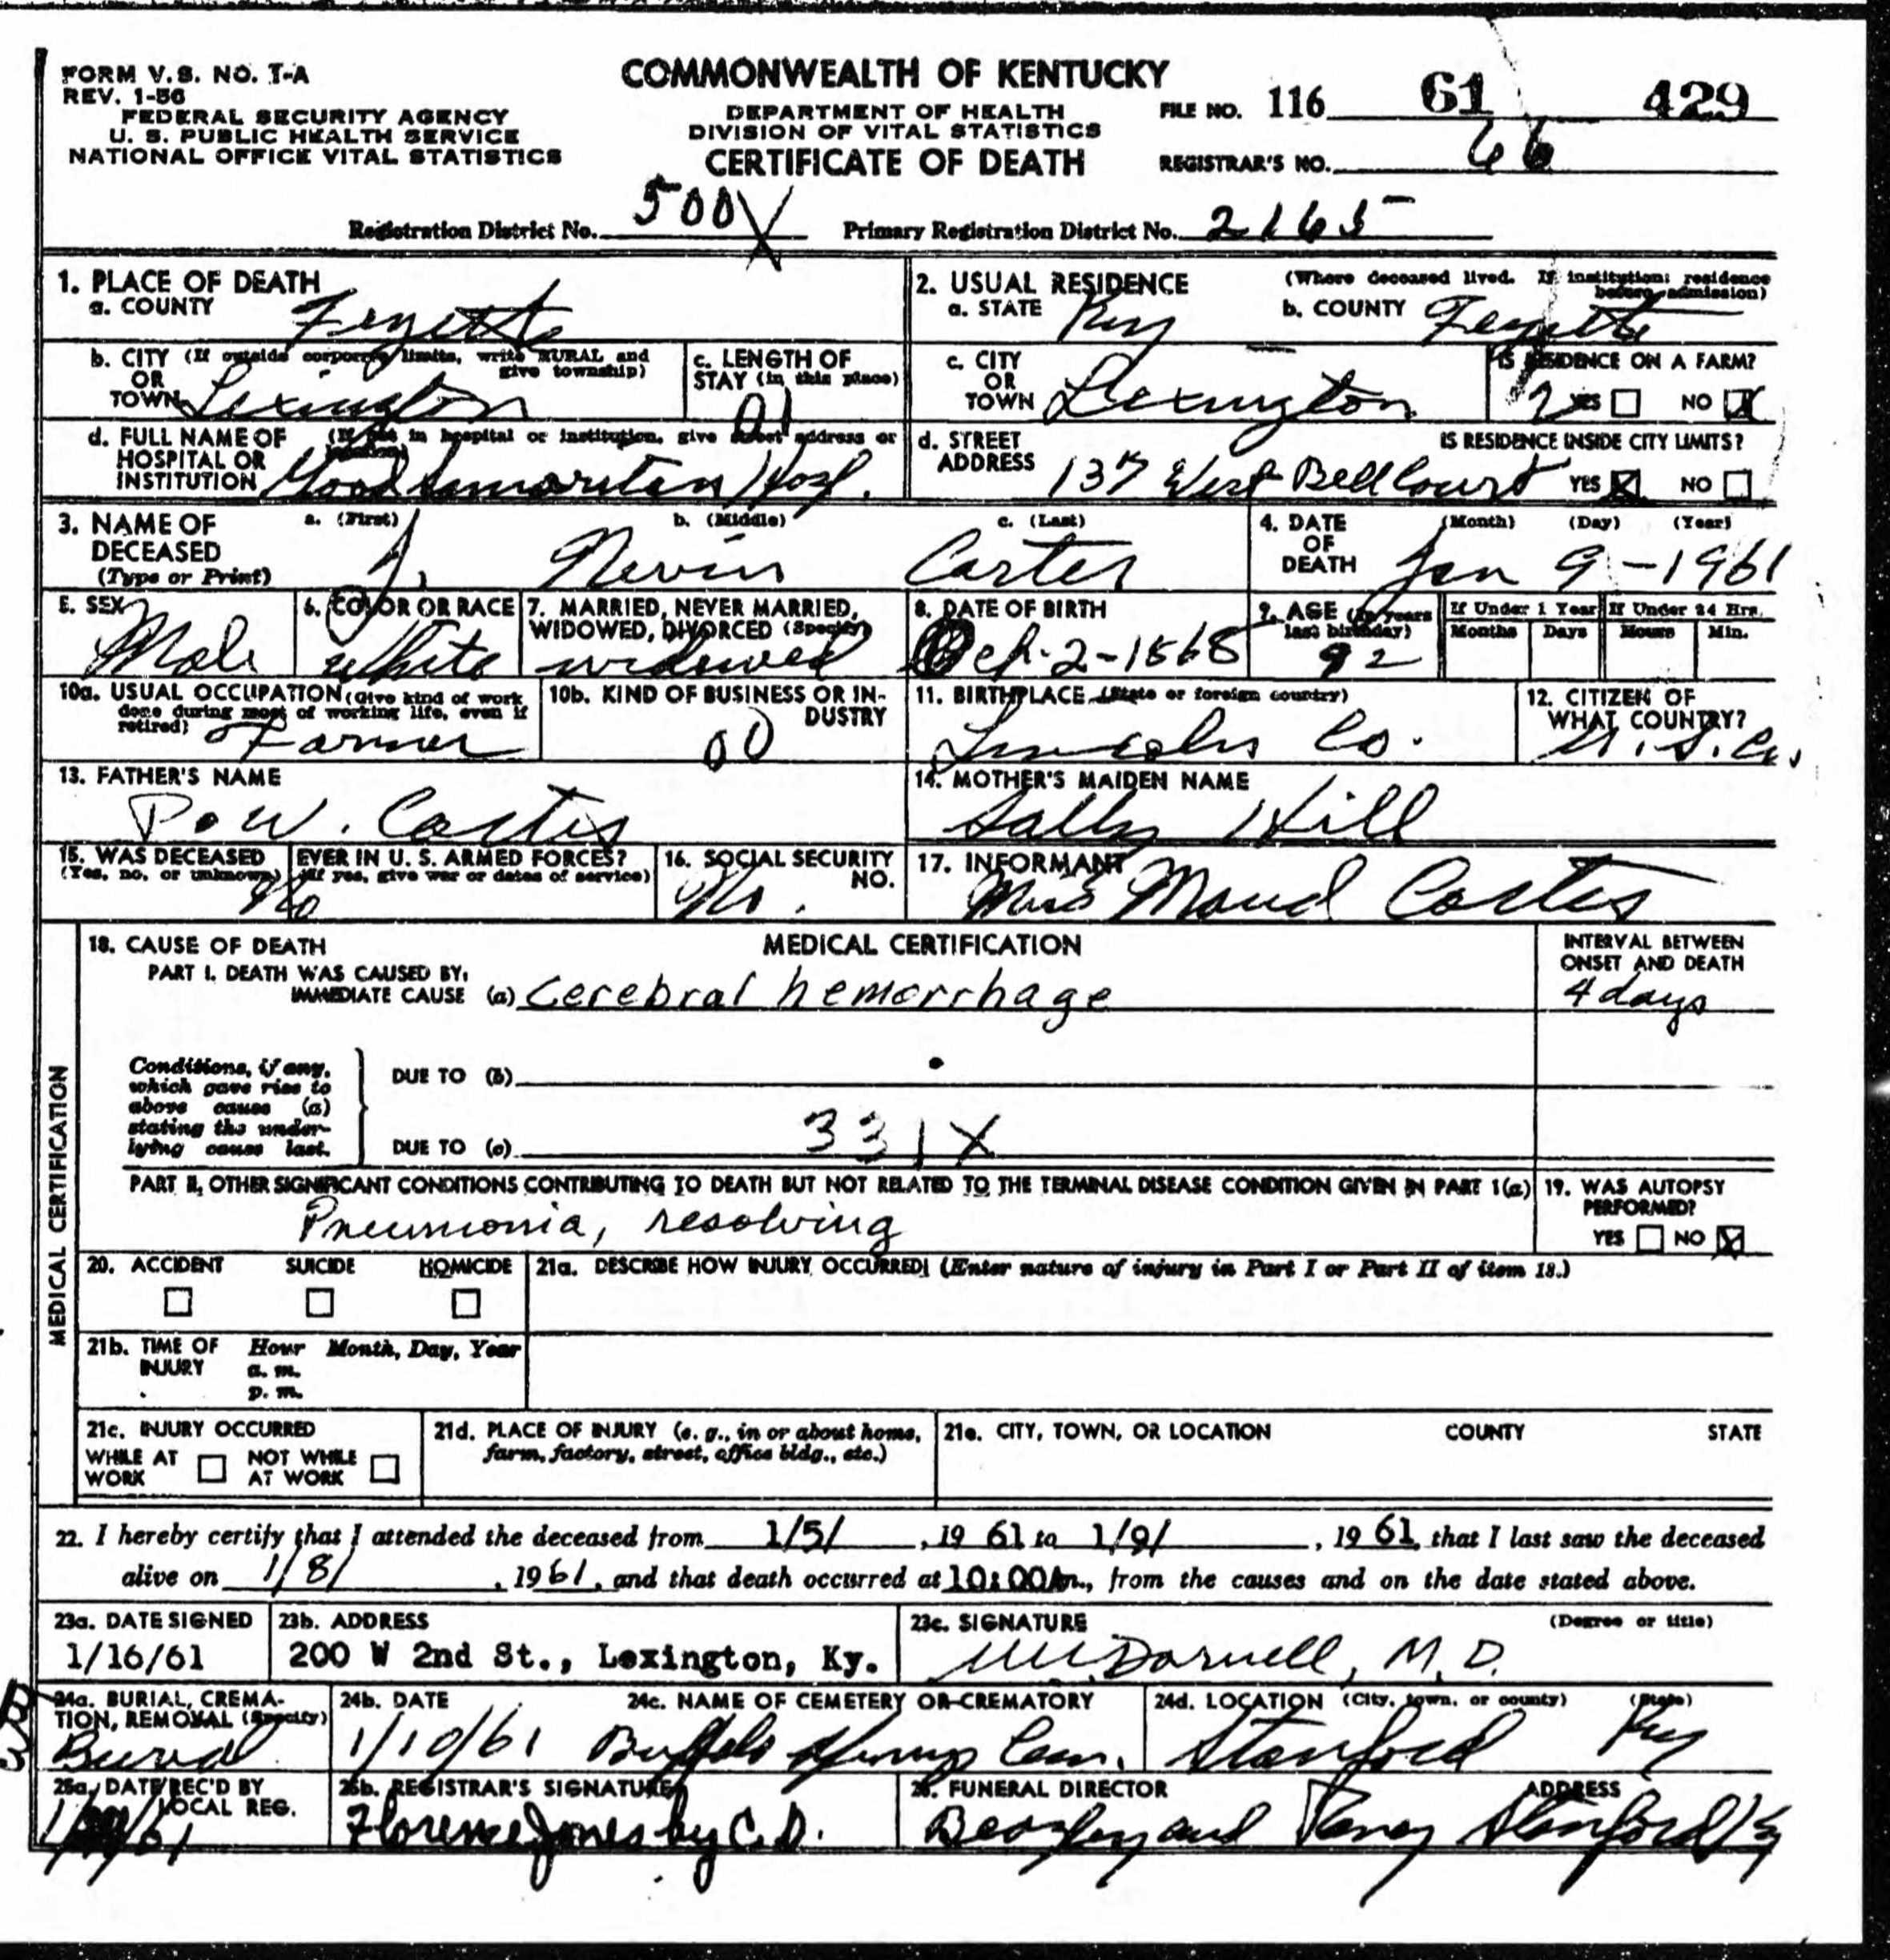 FORM V.S. NO. 1-A
REV. 1-56
FEDERAL SECURITY AGENCY
U. S. PUBLIC HEALTH SERVICE
NATIONAL OFFICE VITAL STATISTICS
COMMONWEALTH OF KENTUCKY
DEPARTMENT OF HEALTH
DIVISION OF VITAL STATISTICS
CERTIFICATE OF DEATH
FILE NO. 116 61 429
REGISTRAR'S NO. 66
Registration District No. 500X Primary Registration District No. 2165
1. PLACE OF DEATH
a. COUNTY Fayette
2. USUAL RESIDENCE (Where deceased lived. If institution: residence before admission)
a. STATE Ky b. COUNTY Fayette
b. CITY (If outside corporate limits, write RURAL and give township)
OR
TOWN Lexington
c. LENGTH OF
STAY (in this place)
01
c. CITY
OR
TOWN Lexington
IS RESIDENCE ON A FARM?
2 YES NO X
d. FULL NAME OF (If not in hospital or institution, give street address or location)
HOSPITAL OR
INSTITUTION Good Samaritan Hosp.
d. STREET
ADDRESS 137 West Bell Court
IS RESIDENCE INSIDE CITY LIMITS?
YES X NO
3. NAME OF
DECEASED
(Type or Print)
a. (First) b. (Middle) c. (Last)
J. Nevin Carter
4. DATE
OF
DEATH
(Month) (Day) (Year)
Jan 9-1961
5. SEX
Male
6. COLOR OR RACE
White
7. MARRIED, NEVER MARRIED,
WIDOWED, DIVORCED (Specify)
widowed
8. DATE OF BIRTH
Oct-2-1868
9. AGE (In years
last birthday)
92
If Under 1 Year
Months Days
If Under 24 Hrs.
Hours Min.
10a. USUAL OCCUPATION (Give kind of work
done during most of working life, even if
retired) Farmer
10b. KIND OF BUSINESS OR IN-
DUSTRY
00
11. BIRTHPLACE (State or foreign country)
Lincoln Co.
12. CITIZEN OF
WHAT COUNTRY?
U.S.A.
13. FATHER'S NAME
P.W. Carter
14. MOTHER'S MAIDEN NAME
Sally Hill
15. WAS DECEASED EVER IN U. S. ARMED FORCES?
(Yes, no, or unknown) (If yes, give war or dates of service)
No
16. SOCIAL SECURITY
NO.
No.
17. INFORMANT
Maud Carter
MEDICAL CERTIFICATION
18. CAUSE OF DEATH
MEDICAL CERTIFICATION
INTERVAL BETWEEN
ONSET AND DEATH
PART I. DEATH WAS CAUSED BY:
IMMEDIATE CAUSE (a) Cerebral hemorrhage
4 days
Conditions, if any,
which gave rise to
above cause (a)
stating the under-
lying cause last.
DUE TO (b)
DUE TO (c) 331X
PART II, OTHER SIGNIFICANT CONDITIONS CONTRIBUTING TO DEATH BUT NOT RELATED TO THE TERMINAL DISEASE CONDITION GIVEN IN PART 1(a)
Pneumonia, resolving
19. WAS AUTOPSY
PERFORMED?
YES NO X
20. ACCIDENT SUICIDE HOMICIDE
21a. DESCRIBE HOW INJURY OCCURRED! (Enter nature of injury in Part I or Part II of item 18.)
21b. TIME OF
INJURY
Hour Month, Day, Year
a. m.
p. m.
21c. INJURY OCCURRED
WHILE AT
WORK
NOT WHILE
AT WORK
21d. PLACE OF INJURY (e. g., in or about home,
farm, factory, street, office bldg., etc.)
21e. CITY, TOWN, OR LOCATION COUNTY STATE
22. I hereby certify that I attended the deceased from 1/5/, 1961 to 1/9/, 1961, that I last saw the deceased
alive on 1/8/, 1961, and that death occurred at 10:00 Am., from the causes and on the date stated above.
23a. DATE SIGNED
1/16/61
23b. ADDRESS
200 W 2nd St., Lexington, Ky.
23c. SIGNATURE (Degree or title)
Darnell, M.D.
24a. BURIAL, CREMA-
TION, REMOVAL (Specify)
Burial
24b. DATE
1/10/61
24c. NAME OF CEMETERY OR CREMATORY
Buffalo Springs Cem.
24d. LOCATION (City, town, or county) (State)
Stanford Ky
25a. DATE REC'D BY
LOCAL REG.
25b. REGISTRAR'S SIGNATURE
Florence Jones by C.D.
26. FUNERAL DIRECTOR ADDRESS
Beazley and Stanford Ky